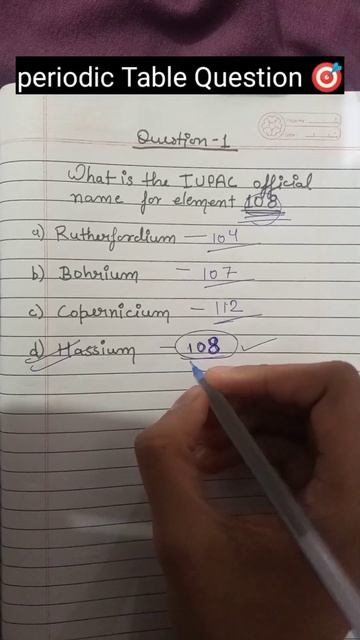 periodic Table Question 🎯
Question -1
What is the IUPAC official
name for element 108
a) Rutherfordium — 104
b) Bohrium — 107
c) Copernicium — 112
d) Hassium — 108 ✓